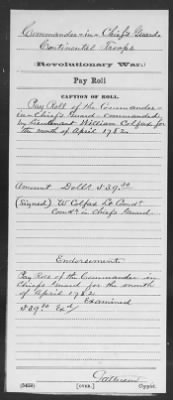 Commander-in-Chief's Guard
Continental Troops
(Revolutionary War.)
Pay Roll
CAPTION OF ROLL.
Pay Roll of the Commander
in-Chief's Guard commanded
by Lieutenant William Colfax for
the month of April 1782
Amount Dolls 539.
(Signed) W Colfax Lt Comdt
Comdr in Chiefs Guard
Endorsement
Pay Roll of the Commander in
Chief's Guard for the month
of April 1782
Examined
539. Exd
Copyist.
[OVER.]